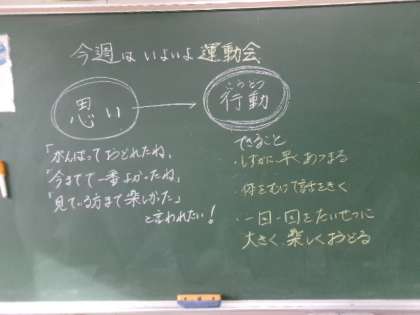 今週はいよいよ運動会
思い
こうどう
行動
「がんばっておどれたね」
「今までで一番よかったね」
「見ている方まで楽しかった」
と言われたい!
できること
・しずかに早くあつまる
・体をむけて話をきく
・一回一回をたいせつに
大きく楽しくおどる